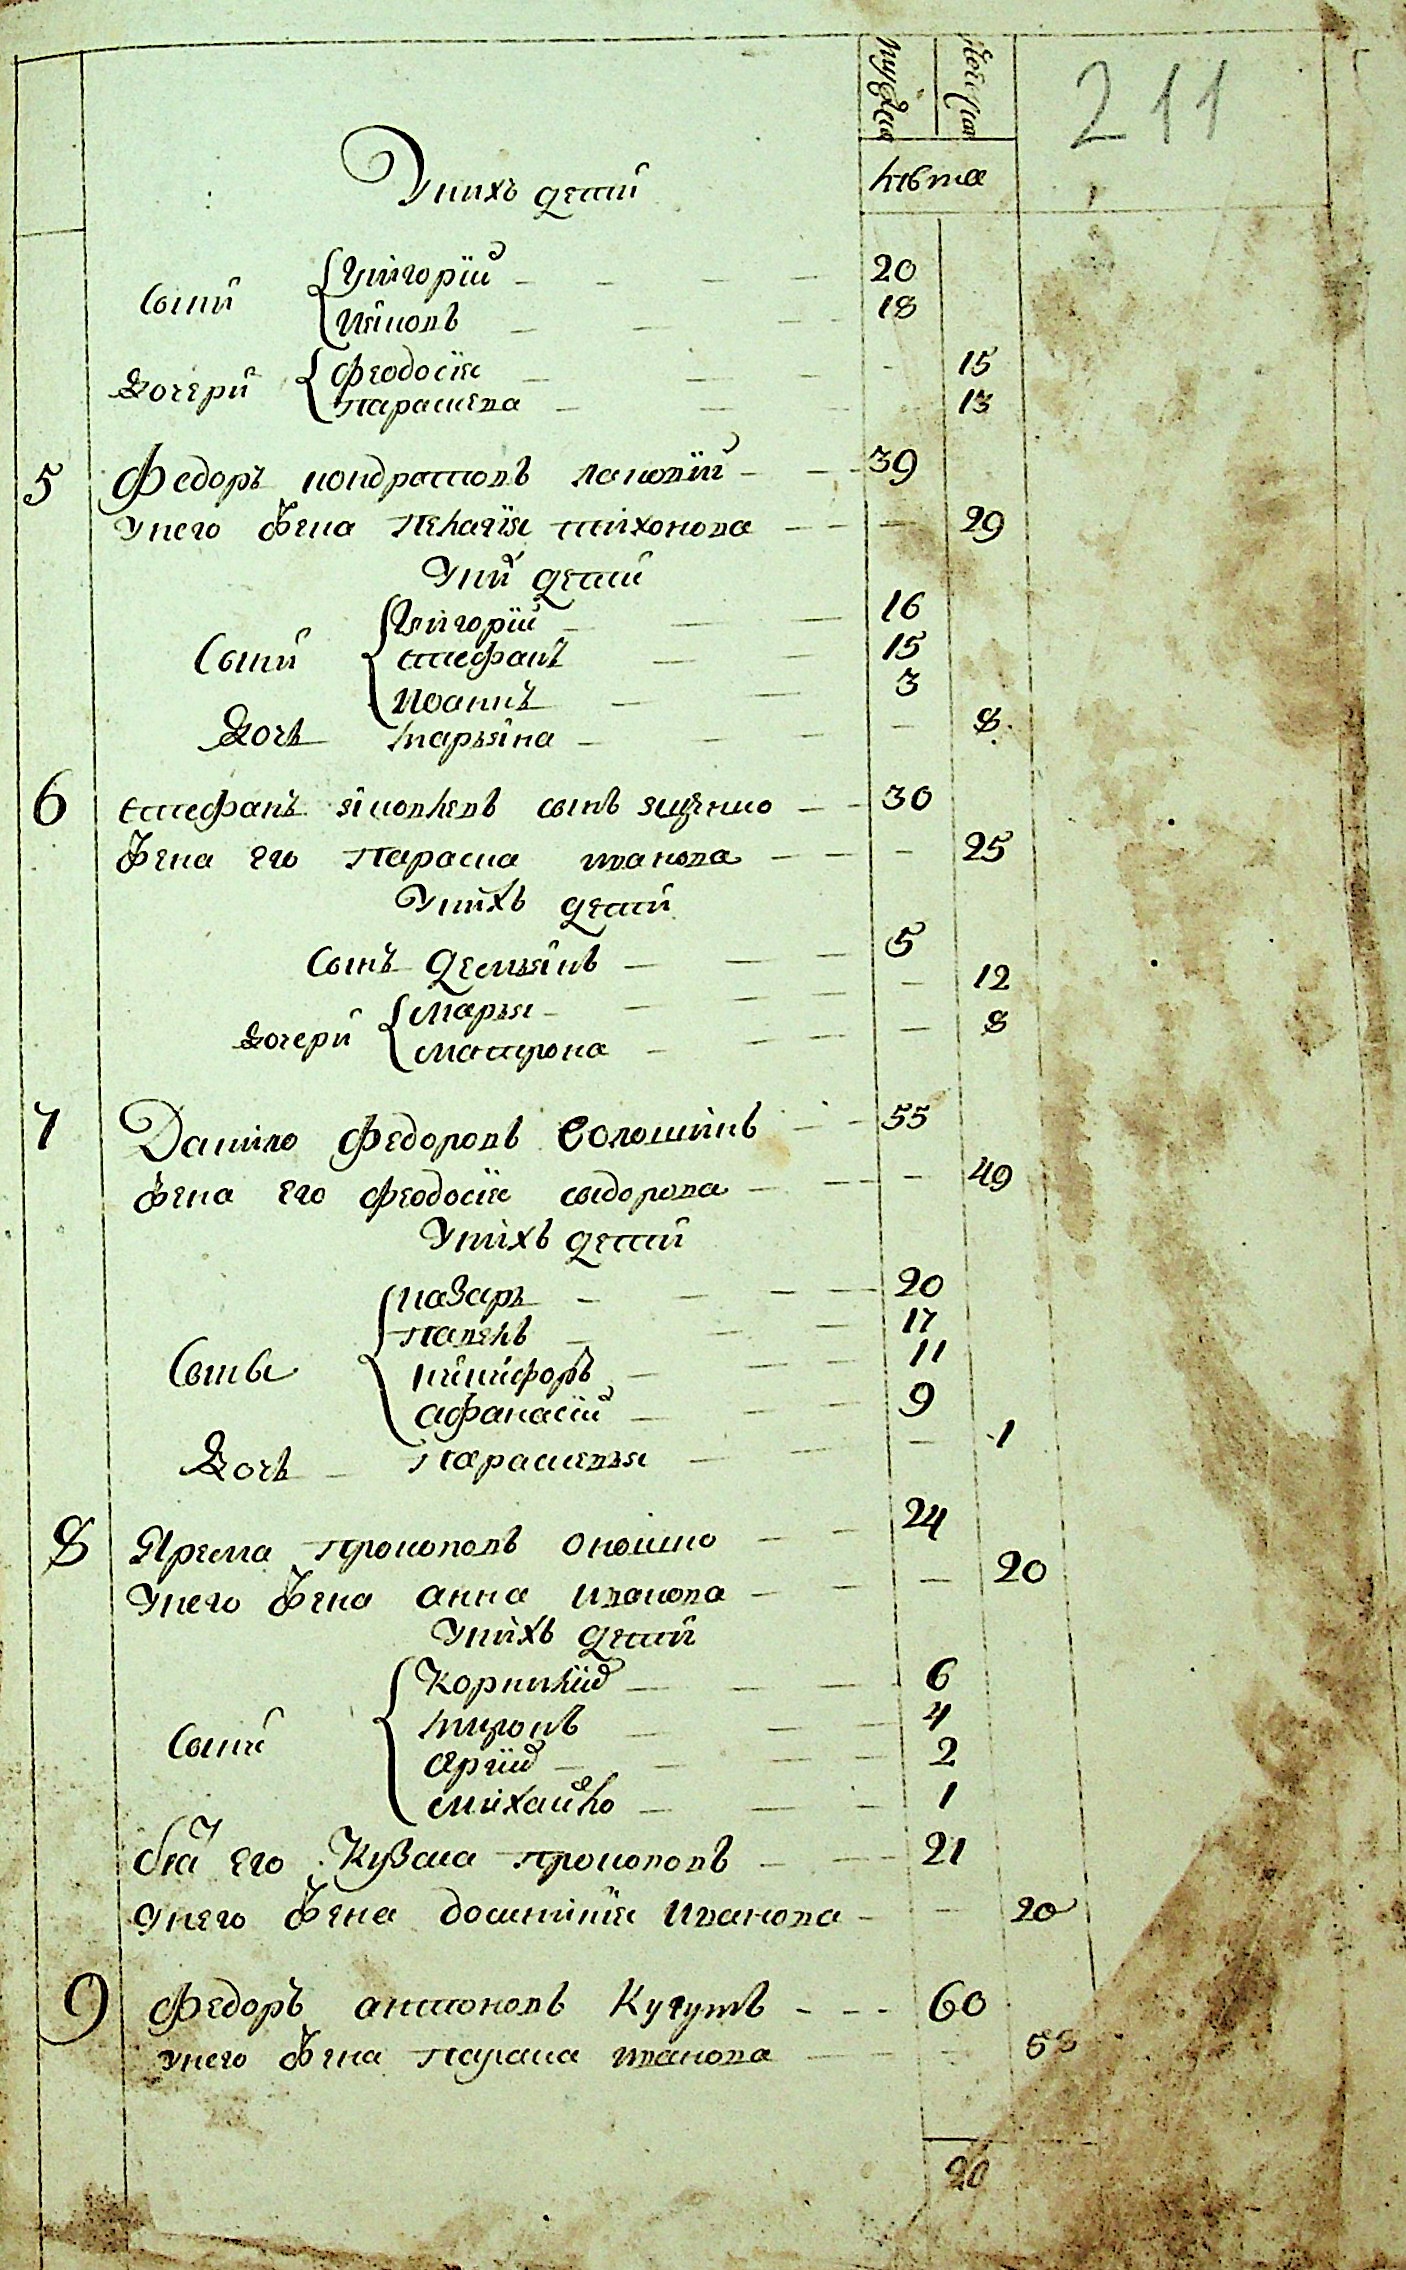 211
мужска женска
лѣта
У нихъ детй
Сынй Григорїй 20
Яковъ 18
Дочерй Феодосїя 15
Парасцева 13
5 Федоръ кондратовъ лановїй 39
У него жена Пелагїя тихонова 29
У ни детй
Сынй Григорїй 16
Стефанъ 15
Иоаннъ 3
Дочь марьяна 8
6 Стефанъ яковлевъ сынъ ященко 30
жена его параска иванова 25
У нихъ детй
Сынъ демьянъ 5
Дочерй марья 12
матрона 8
7 Данило Федоровъ Солошинъ 55
жена его феодосїя сыдорова 49
У нихъ детй
Сыны назаръ 20
павелъ 17
никифоръ 11
афанасїй 9
Дочь парасцевья 1
8 Ярема прокоповъ оношко 24
У него жена анна иванова 20
У нихъ детй
Сынй Корнилїй 6
миронъ 4
2
михайло 1
его Кузма прокоповъ 21
У него жена домникїя иванова 20
9 Федоръ антоновъ Кугутъ 60
У него жена параска иванова
20